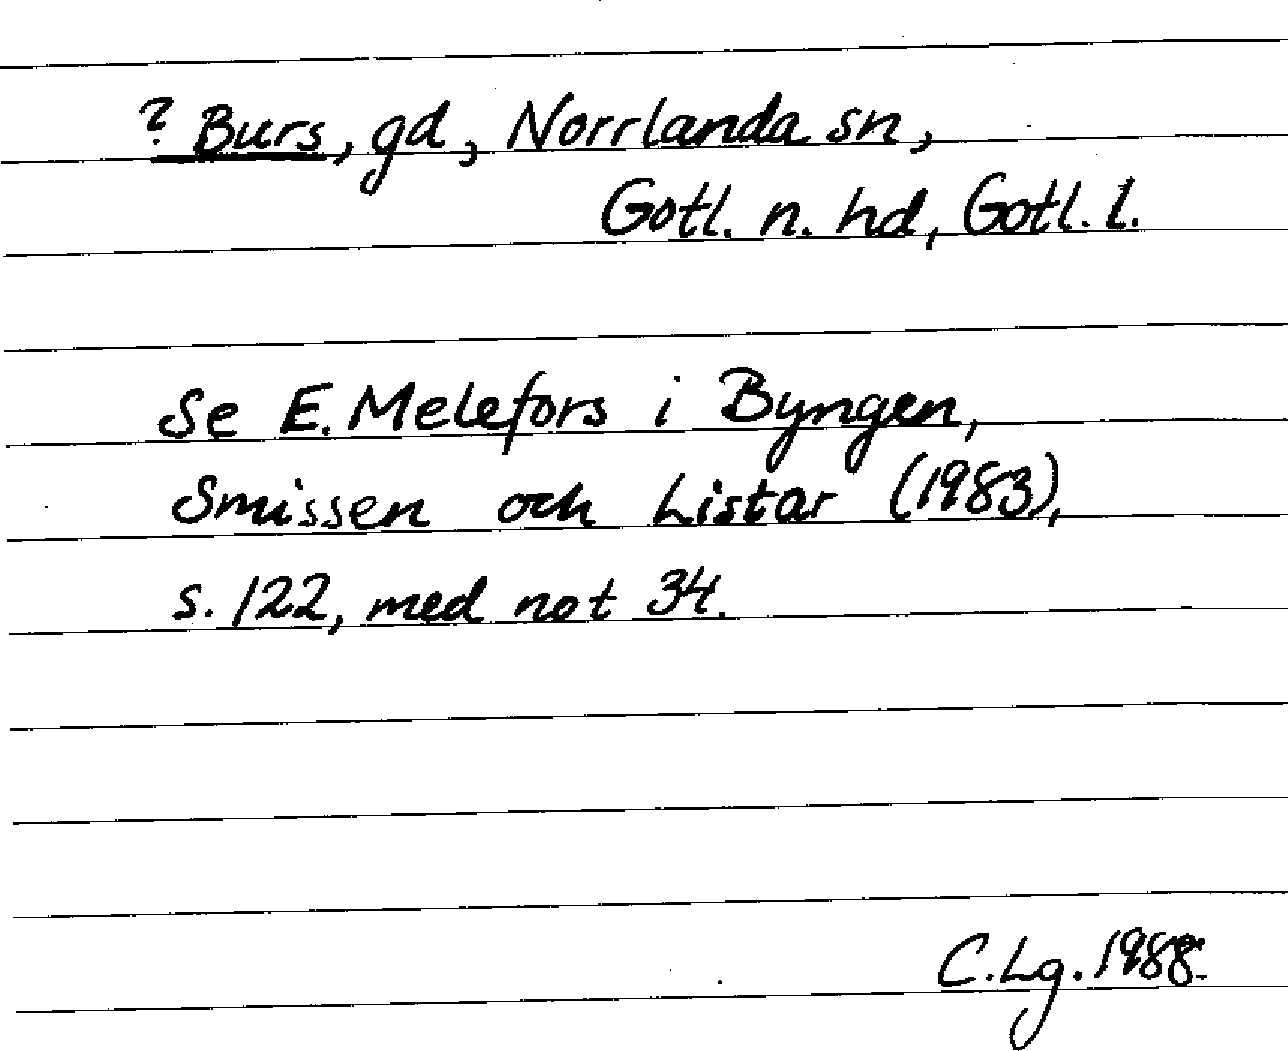 ? Burs, gd, Norrlanda sn,
Gotl. n. hd, Gotl. l.
Se E. Melefors i Byngen,
Smissen och Listar (1983),
s. 122, med not 34.
C. Lg. 1988.